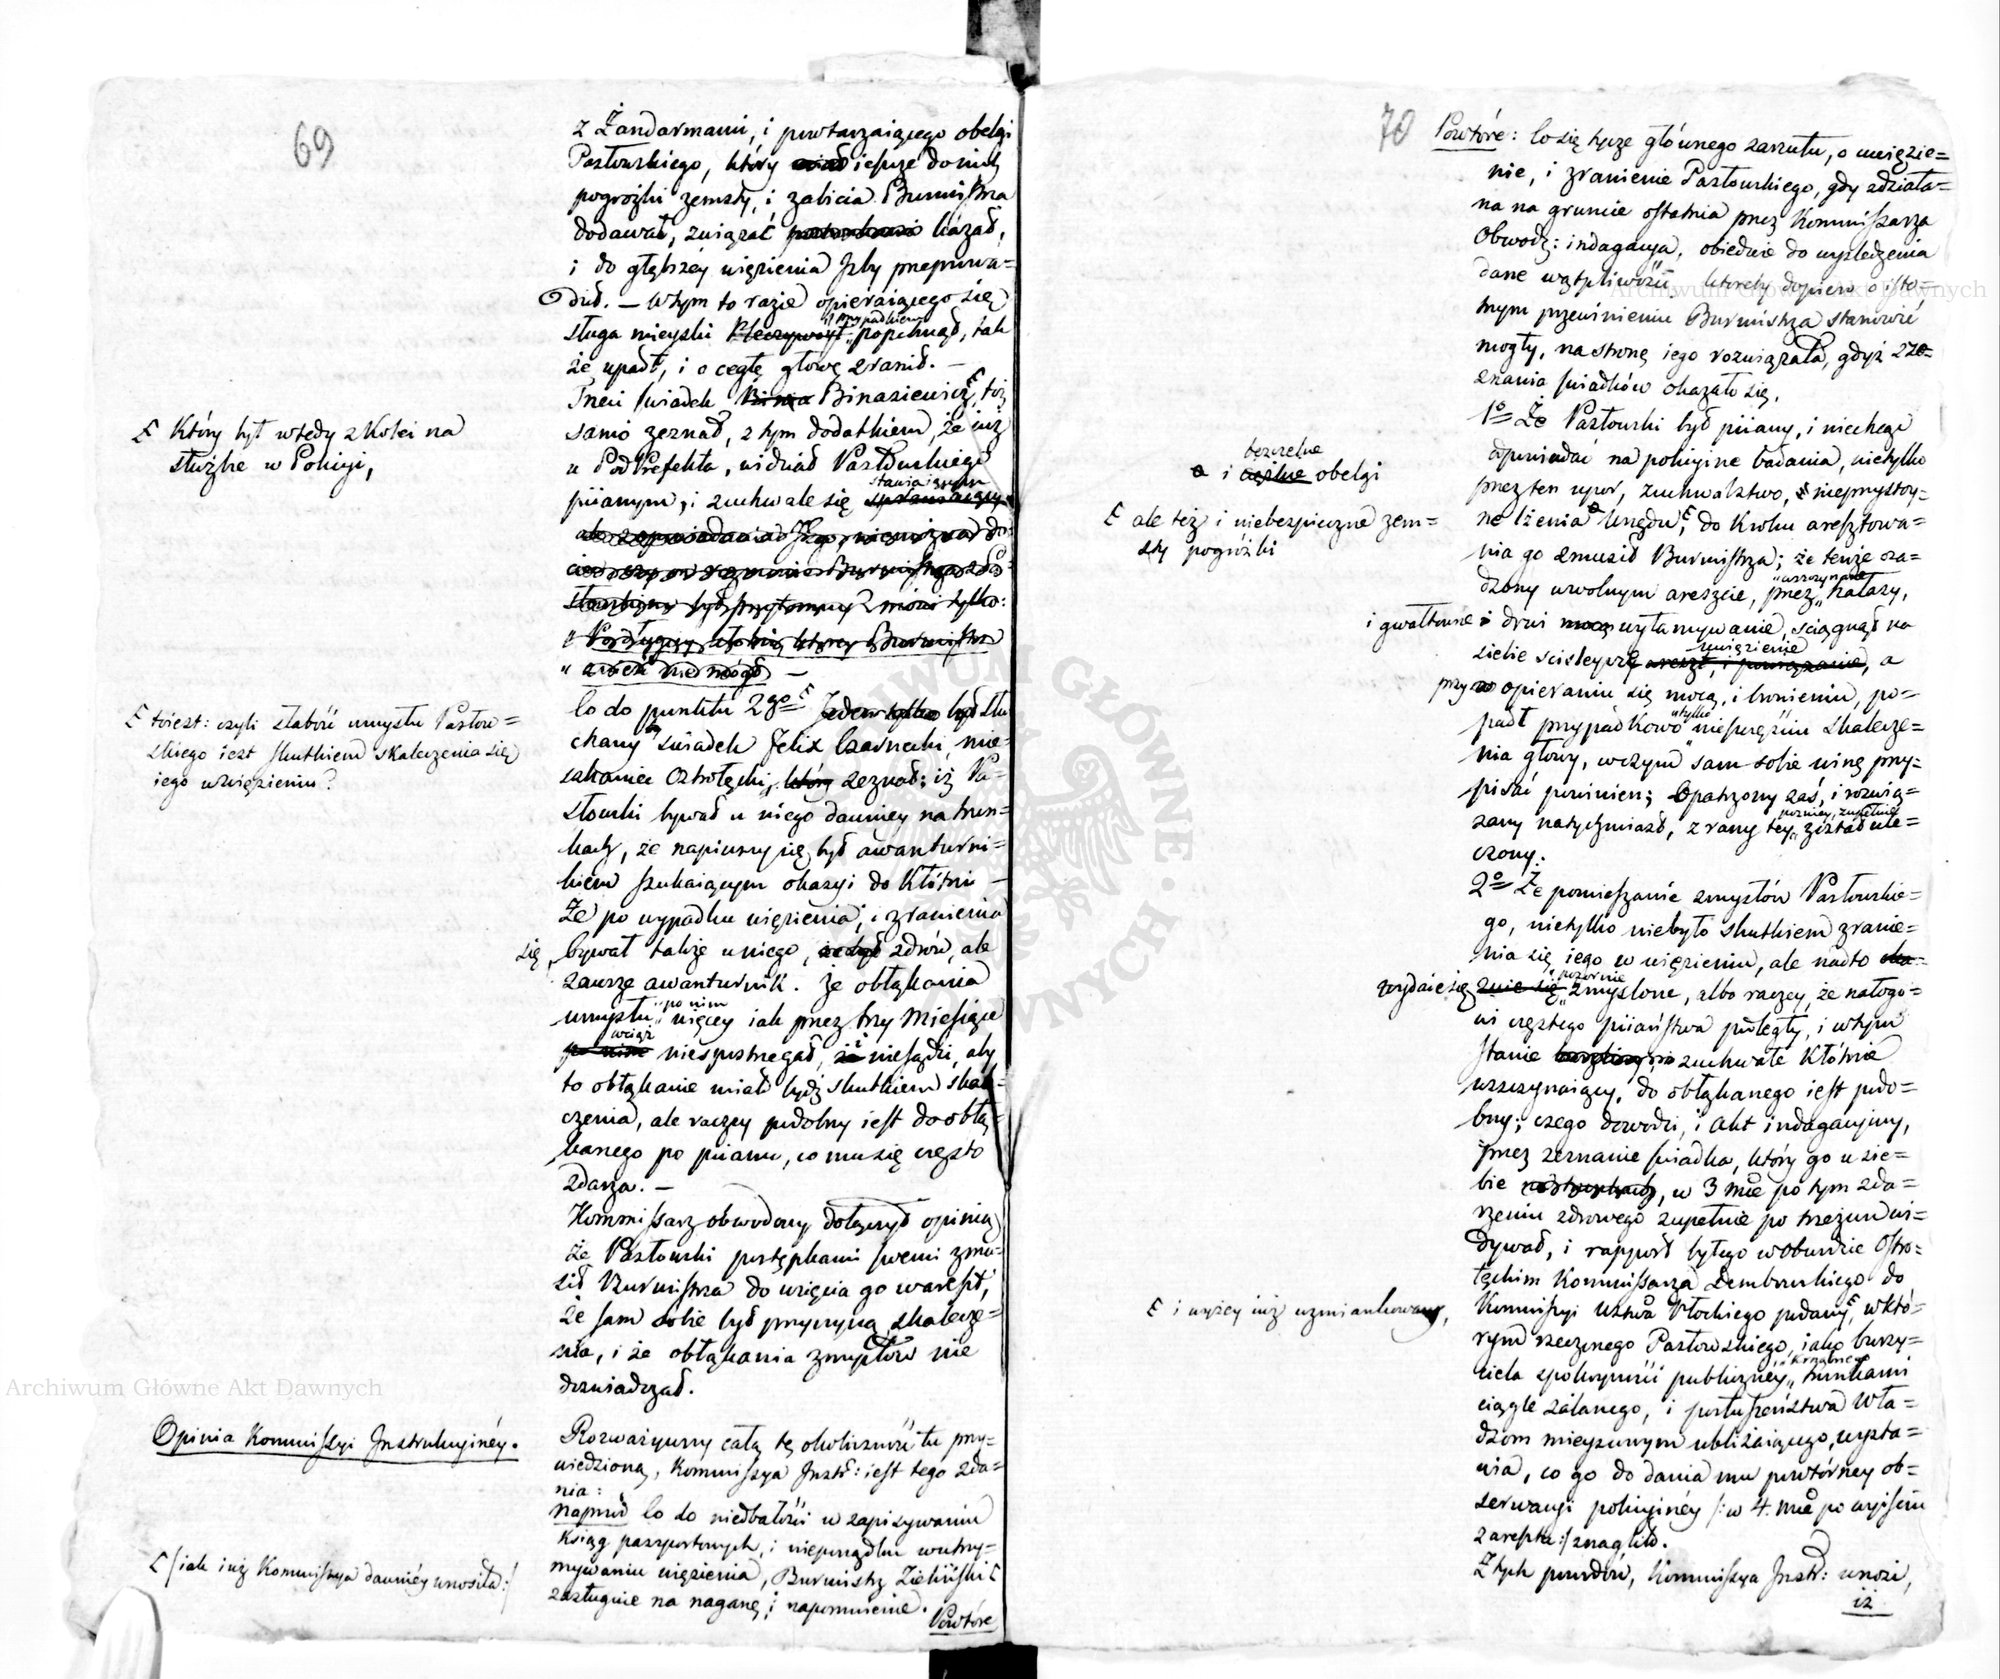 69
z Żandarmami, i powtarzaiącego obelgi
Pasłowskiego, który ieszcze do nich
pogróżki zemsty, i zabicia Burmistrza
dodawał, związać kazał,
i do głębszey więzienia Izby przeprowa=
dził. — W tym to razie opieraiącego się
sługa mieyski przypadkiem popchnął, tak
że upadł, i o cegłę głowę zranił. —
Trzeci świadek Binasiewicz, toż
Który był wtedy z kolei na
służbie w Policyi,
samo zeznał, z tym dodatkiem, że iuż
u PodPrefekta, widział Pasłowskiego
piianym, i zuchwale się stawiaiącym
Co do punktu 2go
toiest: czyli słabość umysłu Pasłow=
skiego iest skutkiem skaleczenia się
iego w więzieniu?
chany świadek Felix Czarnecki, mie=
szkaniec Ostrołęcki, zeznał: iż Pa=
słowski bywał u niego dawniey na trun=
kach, że napiwszy się był awanturni=
kiem szukaiącym okazyi do kłótni —
Że po wypadku więzienia, i zranienia
się, bywał także u niego, zdrów, ale
zawsze awanturnik. Że obłąkania
umysłu po nim więcey iak przez trzy Miesiące
wciąż niespostrzegał, i niesądzi, aby
to obłąkanie miało bydź skutkiem skale=
czenia, ale raczey podobny iest do obłą=
kanego po piianu, co mu się często
zdarza. —
Kommissarz obwodowy dołączył opinią
że Pasłowski postępkami swemi zmu=
sił Burmistrza do wzięcia go w areszt,
że sam sobie był przyczyną skalecze=
nia, i że obłąkania zmysłów nie
doświadczał.
Opinia Kommissyi Instrukcyiney.
Rozważywszy całą tę okoliczność tu przy=
wiedzioną, Kommissya Instr: iest tego zda=
nia:
naprzód Co do niedbałości w zapisywaniu
Ksiąg paszportowych, i nieporządku w utrzy=
mywaniu więzienia, Burmistrz Zieliński
/iak iuż Kommissya dawniey wnosiła:/
zasługuie na naganę, i napomnienie.
Powtóre
70
Powtóre: Co się tycze głównego zarzutu, o uwięzie=
nie, i zranienie Pasłowskiego, gdy zdziała=
na na gruncie ostatnia przez Kommissarza
Obwodo: indagacya, obiedwie do wyśledzenia
dane wątpliwości, któreby dopiero o isto=
tnym przewinieniu Burmistrza stanowić
mogły, na stronę iego rozwiązała, gdyż z ze=
znania świadków okazało się,
1o Że Pasłowski był piiany, i niechcąc
odpowiadać na policyine badania, nietylko
przez ten upor, zuchwalstwo, nieprzystoy=
ne lżenia Urzędu, do kroku aresztowa=
i bezczelne obelgi
ale też i niebezpieczne zem=
sty pogróżki
nia go zmusił Burmistrza; że tenże osa=
dzony w wolnym areszcie, przez wszczynane hałasy,
i gwałtowne drzwi wyłamywanie, ściągnął na
siebie ścisleysze uwięzienie, a
przy opieraniu się mocą, i bronieniu, po=
padł przypadkowo tylko nieszczęściu skalecze=
nia głowy, w czym sam sobie winę przy=
pisać powinien; Opatrzony zaś, i rozwią=
zany natychmiast, z rany tey pozniey zupełnie został ule=
czony.
2o Że pomieszanie zmysłów Pasłowskie=
go, nietylko niebyło skutkiem zranie=
nia się iego w więzieniu, ale nadto
wydaie się pozornie zmyślone, albo raczey, że nałogo=
wi częstego piiaństwa podległy, i w tym
stanie zuchwałe kłótnie
wszczynaiący, do obłąkanego iest podo=
bny; czego dowodzi, i Akt indagacyiny,
przez zeznanie świadka, który go u sie=
bie, w 3 mce po tym zda=
rzeniu zdrowego zupełnie po trzeźwu wi=
dywał, i rapport byłego w Obwodzie Ostro=
łęckim Kommissarza Dembowskiego do
Kommissyi Wztwa Płockiego podany, w któ=
i wyżey iuż wzmiankowany,
rym rzeczonego Pasłowskiego, iako burzy=
ciela spokoyności publiczney, trunkami
ciągle zalanego, i posłuszeństwa Wła=
dzom mieyscowym ubliżaiącego, wysta=
wia, co go do dania mu powtórney ob=
serwacyi policyiney /:w 4. mce po wyiściu
z aresztu:/ znagliło.
Z tych powodów, Kommissya Instr: wnosi,
iż
Archiwum Główne Akt Dawnych
Archiwum Główne Akt Dawnych